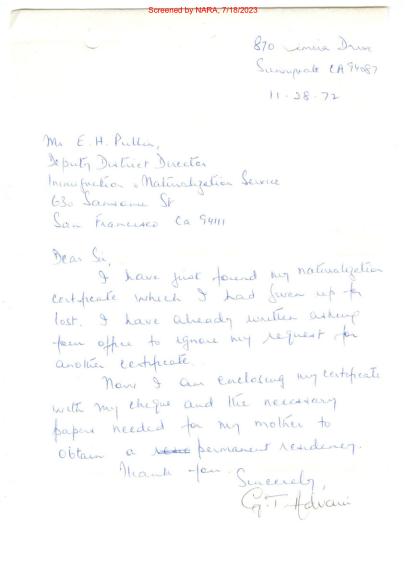 Screened by NARA, 7/18/2023
870 Drive
Sunnyvale CA 94087
11-28-72
Mr E.H. Pullin,
Deputy District Director
Immigration & Naturalization Service
630 Sansome St
San Francisco Ca 94111
Dear Sir,
I have just found my naturalization
certificate which I had given up for
lost. I have already written asking
your office to ignore my request for
another certificate.
Now I am enclosing my certificate
with my cheque and the necessary
papers needed for my mother to
obtain a permanent residency.
Thank you.
Sincerely,
G.T. Advani